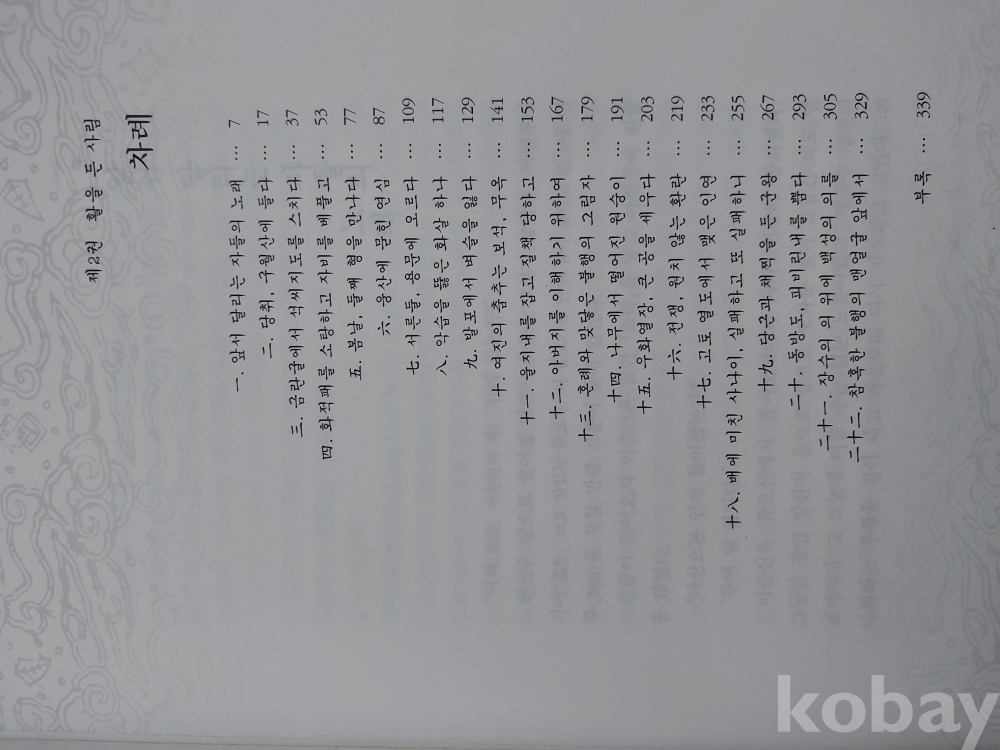 제2권 활을 든 사림
차례
一. 앞서 달리는 자들의 노래 … 7
二. 당취, 구월산에 들다 … 17
三. 금란굴에서 석씨지도를 스치다 … 37
四. 화적패를 소탕하고 자비를 베풀고 … 53
五. 봄날, 둘째 형을 만나다 … 77
六. 용산에 묻힌 연심 … 87
七. 서른둘, 용문에 오르다 … 109
八. 악습을 뚫은 화살 하나 … 117
九. 발포에서 벼슬을 잃다 … 129
十. 여진의 춤추는 보석, 무옥 … 141
十一. 울지내를 잡고 질책 당하고 … 153
十二. 아버지를 이해하기 위하여 … 167
十三. 혼례와 맞닿은 불행의 그림자 … 179
十四. 나무에서 떨어진 원숭이 … 191
十五. 우화열장, 큰 공을 세우다 … 203
十六. 전쟁, 원치 않는 환란 … 219
十七. 고토 열도에서 맺은 인연 … 233
十八. 배에 미친 사나이, 실패하고 또 실패하니 … 255
十九. 당근과 채찍을 든 군왕 … 267
二十. 동방도, 피비린내를 뿜다 … 293
二十一. 장수의 의 위에 백성의 의를 … 305
二十二. 참혹한 불행의 맨얼굴 앞에서 … 329
부록 … 339
kobay